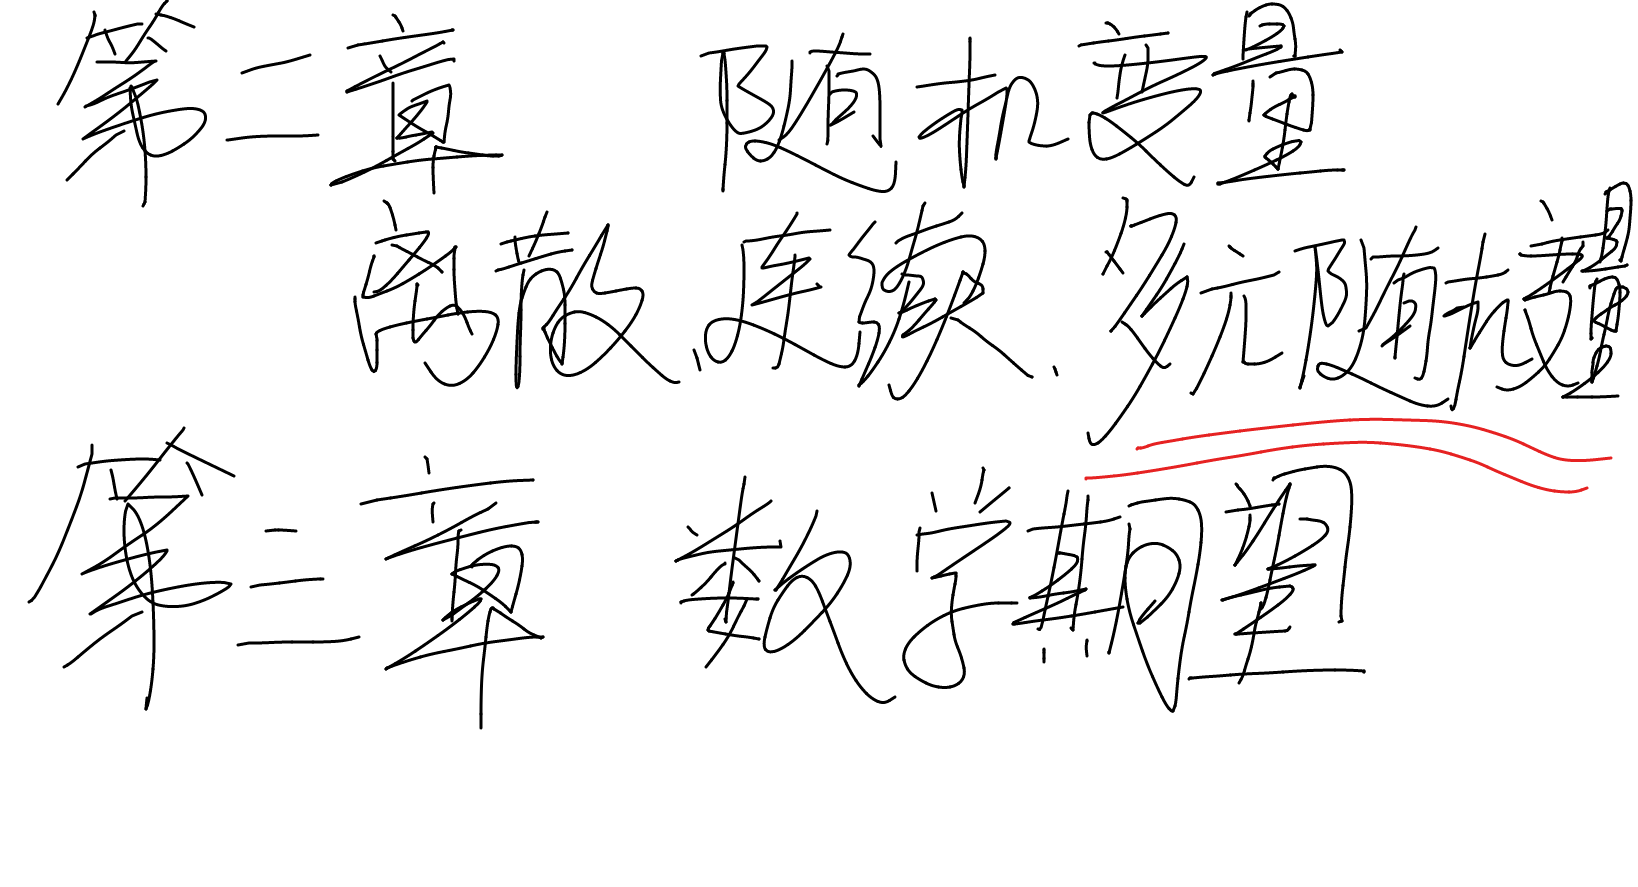 第二章 随机变量
离散、连续、多元随机变量
第三章 数学期望